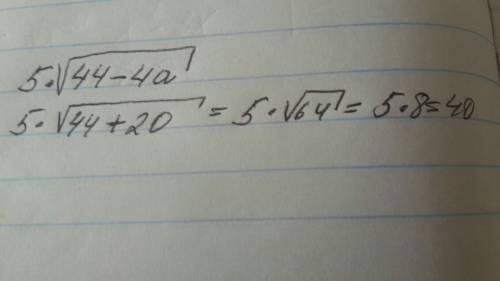 5·√44-4a
5·√44+20 = 5·√64 = 5·8=40